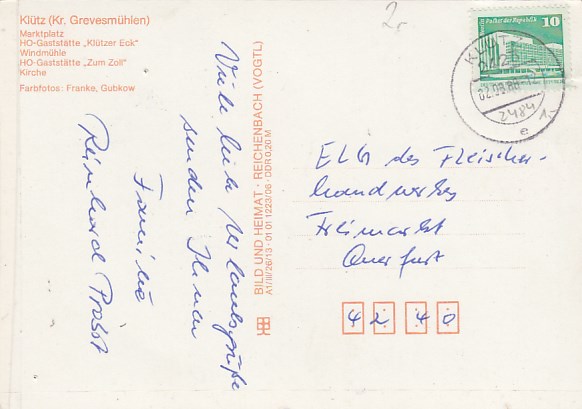 Klütz (Kr. Grevesmühlen)
Marktplatz
HO-Gaststätte „Klützer Eck"
Windmühle
HO-Gaststätte „Zum Zoll"
Kirche
Farbfotos: Franke, Gubkow
Viele liebe Urlaubsgrüße
senden Ihnen
Familie
Reinhard Probst
BILD UND HEIMAT · REICHENBACH (VOGTL)
A1/III/26/13 · 01 01 1223/06 · DDR 0,20 M
2,-
Palast der Republik
10
DDR
KLÜTZ
02.08.88-12
2484
e
1,-
ELG des Fleischer-
handwerks
Freimarkt
Querfurt
4240